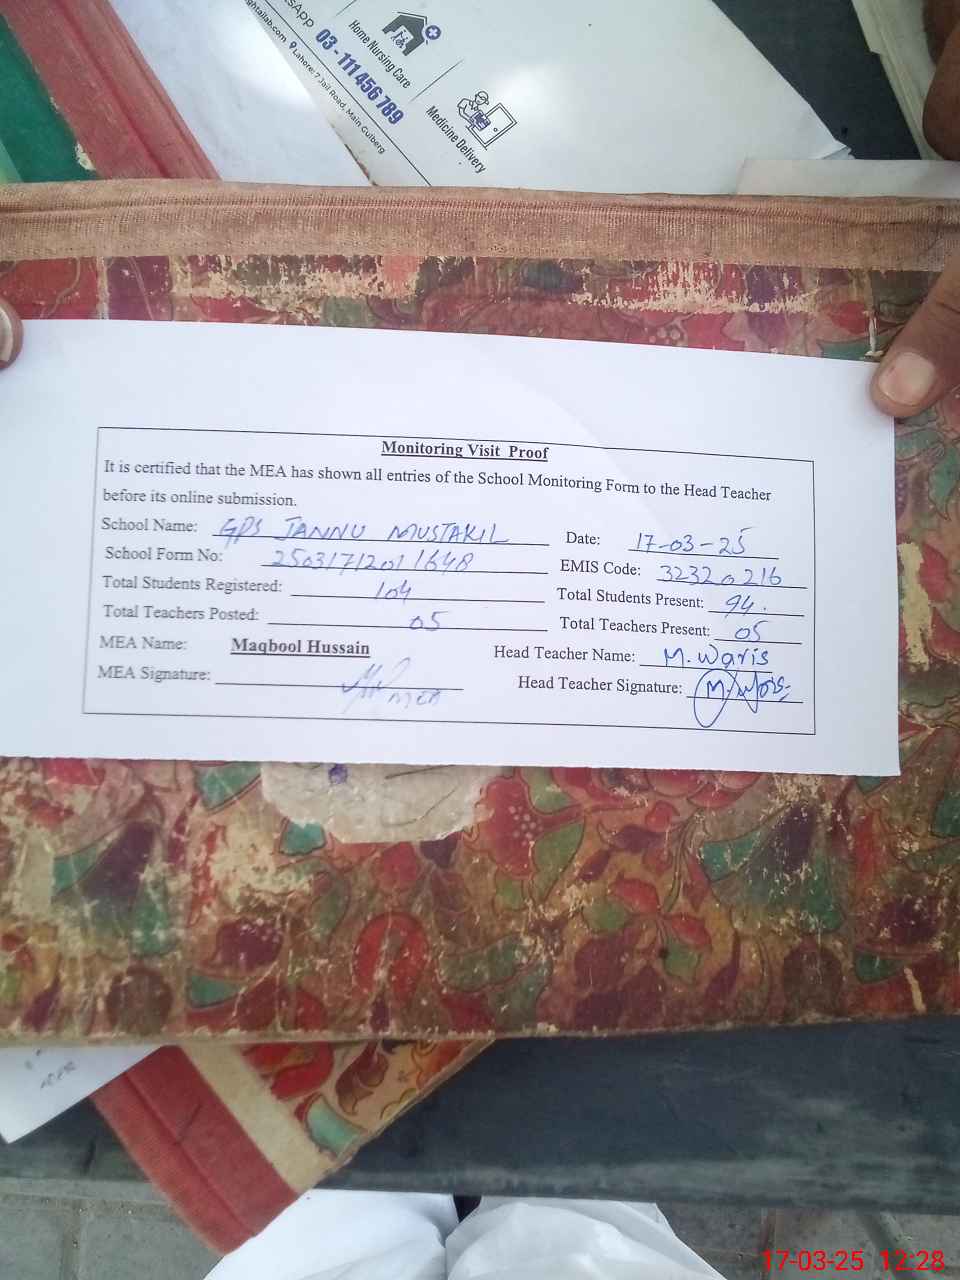 sApp
03 - 111 456 789
ghtailab.com Lahore: 7 Jail Road, Main Gulberg
Home Nursing Care
Medicine Delivery
Monitoring Visit Proof
It is certified that the MEA has shown all entries of the School Monitoring Form to the Head Teacher
before its online submission.
School Name: GPS JANNU MUSTAKIL Date: 17-03-25
School Form No: 25031712011648 EMIS Code: 32320216
Total Students Registered: 104 Total Students Present: 94.
Total Teachers Posted: 05 Total Teachers Present: 05
MEA Name: Maqbool Hussain Head Teacher Name: M. Waris
MEA Signature: MEA Head Teacher Signature: M. Waris
17-03-25 12:28